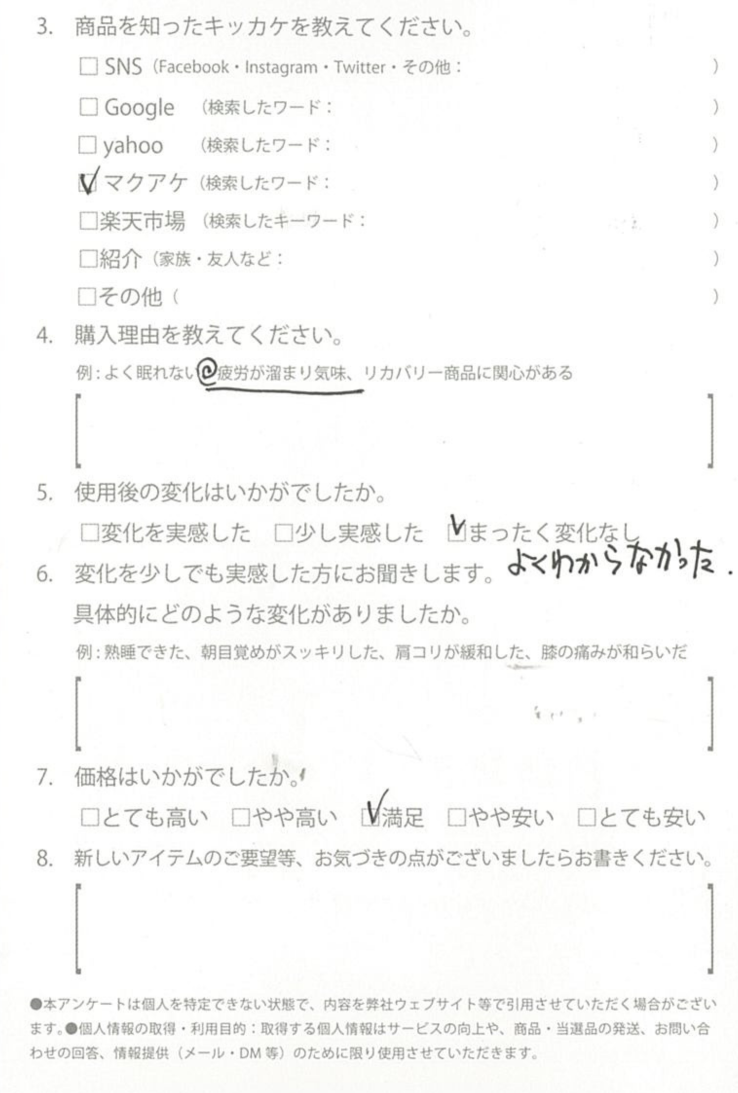 3. 商品を知ったキッカケを教えてください。
□ SNS（Facebook・Instagram・Twitter・その他： ）
□ Google （検索したワード： ）
□ yahoo （検索したワード： ）
☑ マクアケ（検索したワード： ）
□楽天市場 （検索したキーワード： ）
□紹介（家族・友人など： ）
□その他（ ）
4. 購入理由を教えてください。
例：よく眠れない、疲労が溜まり気味、リカバリー商品に関心がある
5. 使用後の変化はいかがでしたか。
□変化を実感した □少し実感した ☑まったく変化なし
よくわからなかった.
6. 変化を少しでも実感した方にお聞きします。
具体的にどのような変化がありましたか。
例：熟睡できた、朝目覚めがスッキリした、肩コリが緩和した、膝の痛みが和らいだ
7. 価格はいかがでしたか。
□とても高い □やや高い ☑満足 □やや安い □とても安い
8. 新しいアイテムのご要望等、お気づきの点がございましたらお書きください。
●本アンケートは個人を特定できない状態で、内容を弊社ウェブサイト等で引用させていただく場合がござい
ます。●個人情報の取得・利用目的：取得する個人情報はサービスの向上や、商品・当選品の発送、お問い合
わせの回答、情報提供（メール・DM 等）のために限り使用させていただきます。